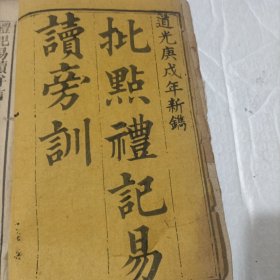 道光庚戌年新鐫
批點禮記易
讀旁訓